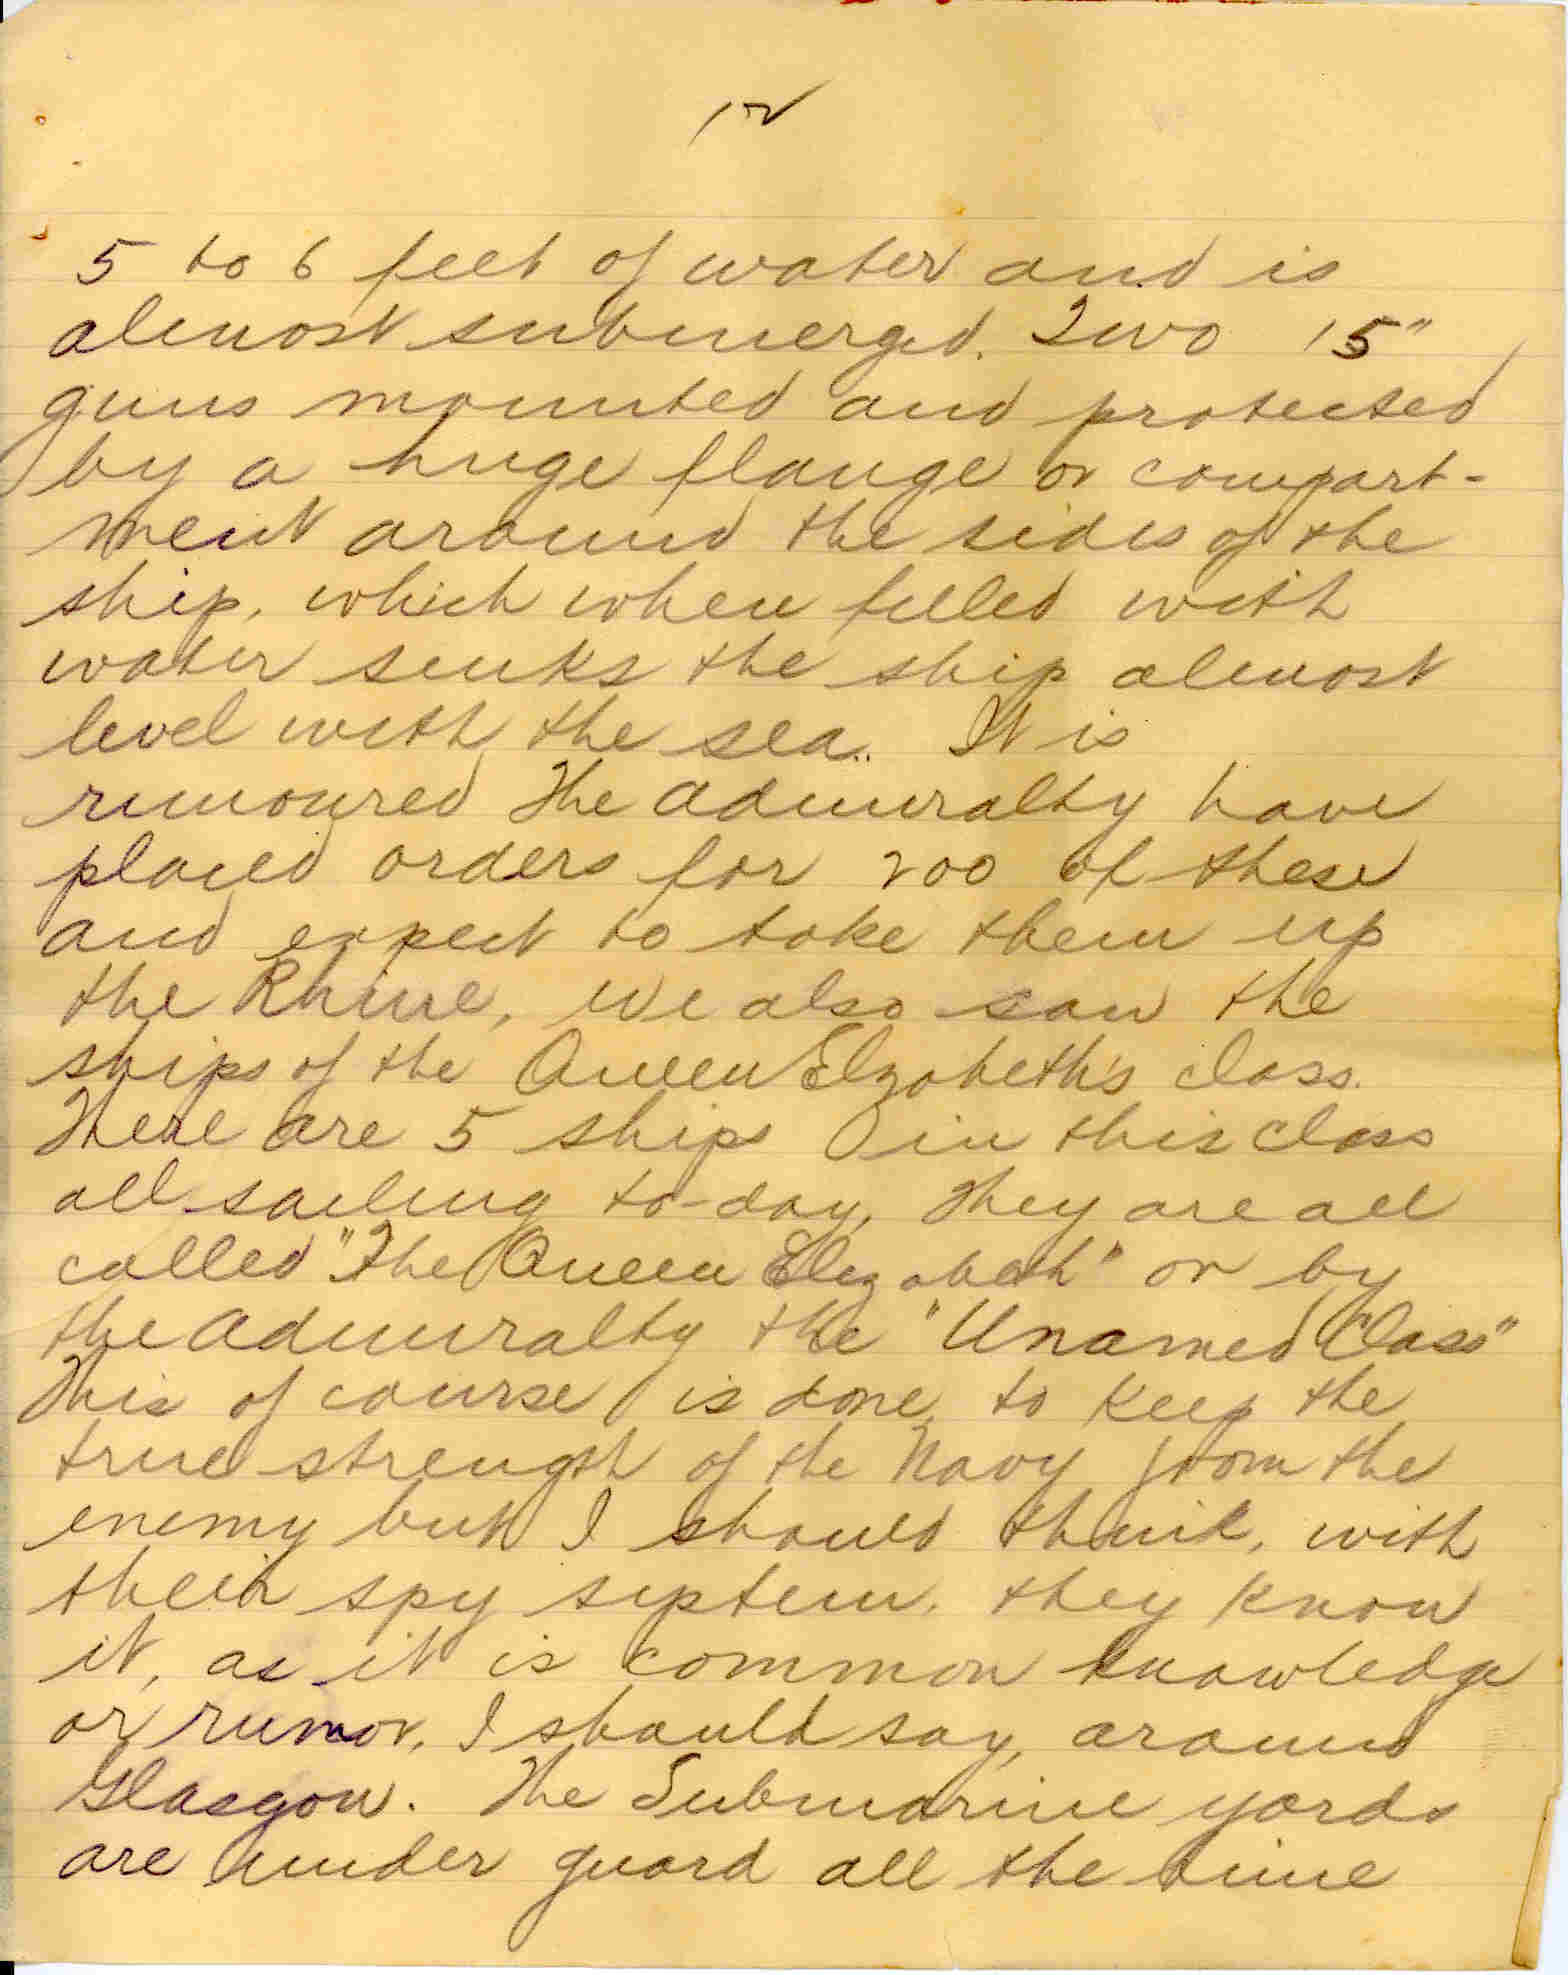 12
5 to 6 feet of water and is
almost submerged. Two 15"
guns mounted and protected
by a huge flange or compart-
ment around the sides of the
ship, which when filled with
water sinks the ship almost
level with the sea.. It is
rumoured The Admiralty have
placed orders for 200 of these
and expect to take them up
the Rhine, We also saw the
ships of the Queen Elzabeth's class.
There are 5 ships in this class
all sailing to-day, They are all
called "The Queen Elizabeth" or by
the Admiralty the "Unamed Class"
This of course is done to keep the
true strength of the Navy from the
enemy but I should think, with
their spy system. they know
it, as it is common knowledge
or rumor, I should say, around
Glasgow. The Submarine yards
are under guard all the time